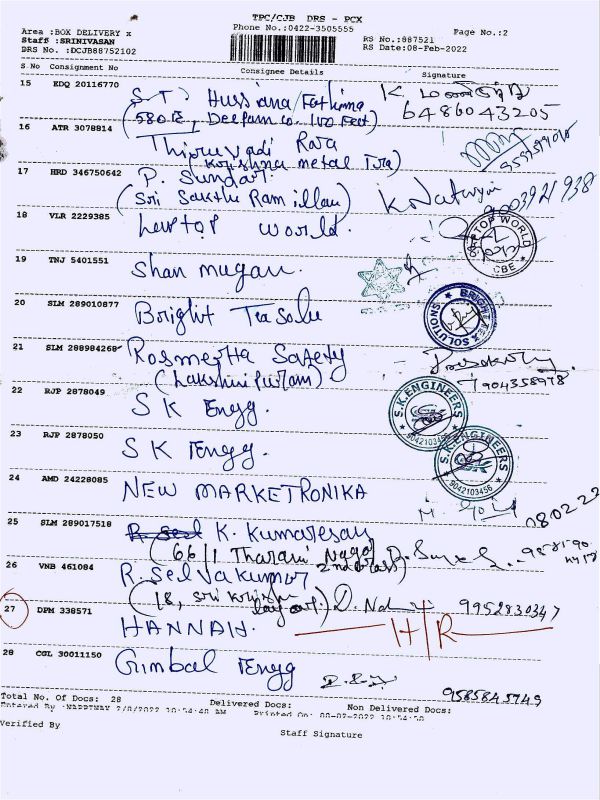 TPC/CJB DRS - PCX
Phone No.:0422-3505555
Page No.:2
Area :BOX DELIVERY x
Staff :SRINIVASAN
DRS No. :DCJB88752102
RS No.:887521
RS Date:08-Feb-2022
S No Consignment No Consignee Details Signature
15 EDQ 20116770
S.T. Hussiana/Fathima
(580.E, Deepam co. 100 Feet)
6486043205
16 ATR 3078814
Thiruvadi Rara
Krishna metal
17 HRD 346750642
P. Sundari
(Sri Sakthi Ram illam)
K Natarajan
18 VLR 2229385
Laptop world.
LAPTOP WORLD
CBE
19 TNJ 5401551
Shan mugam.
20 SLM 289010877
Bright Tea Solu
BRIGHT TEA SOLUTIONS
21 SLM 288984268
Rosmerta Safety
(Lakshmi Puram)
7904358978
22 RJP 2878049
S K Engg.
S.K.ENGINEERS
9042103456
23 RJP 2878050
S K Engg.
S.K.ENGINEERS
9042103456
24 AMD 24228085
NEW MARKETRONIKA
08.02.22
25 SLM 289017518
K. Kumaresan
(66/1 Tharani Nagar
2nd cross)
26 VNB 461084
R. Selvakumar
(18, Sri Krishna
layout.)
9952830347
27 DPM 338571
HANNAH.
H/R
28 CGL 30011150
Gimbal Engg
9585845749
Total No. Of Docs: 28 Delivered Docs: Non Delivered Docs:
Verified By
Staff Signature